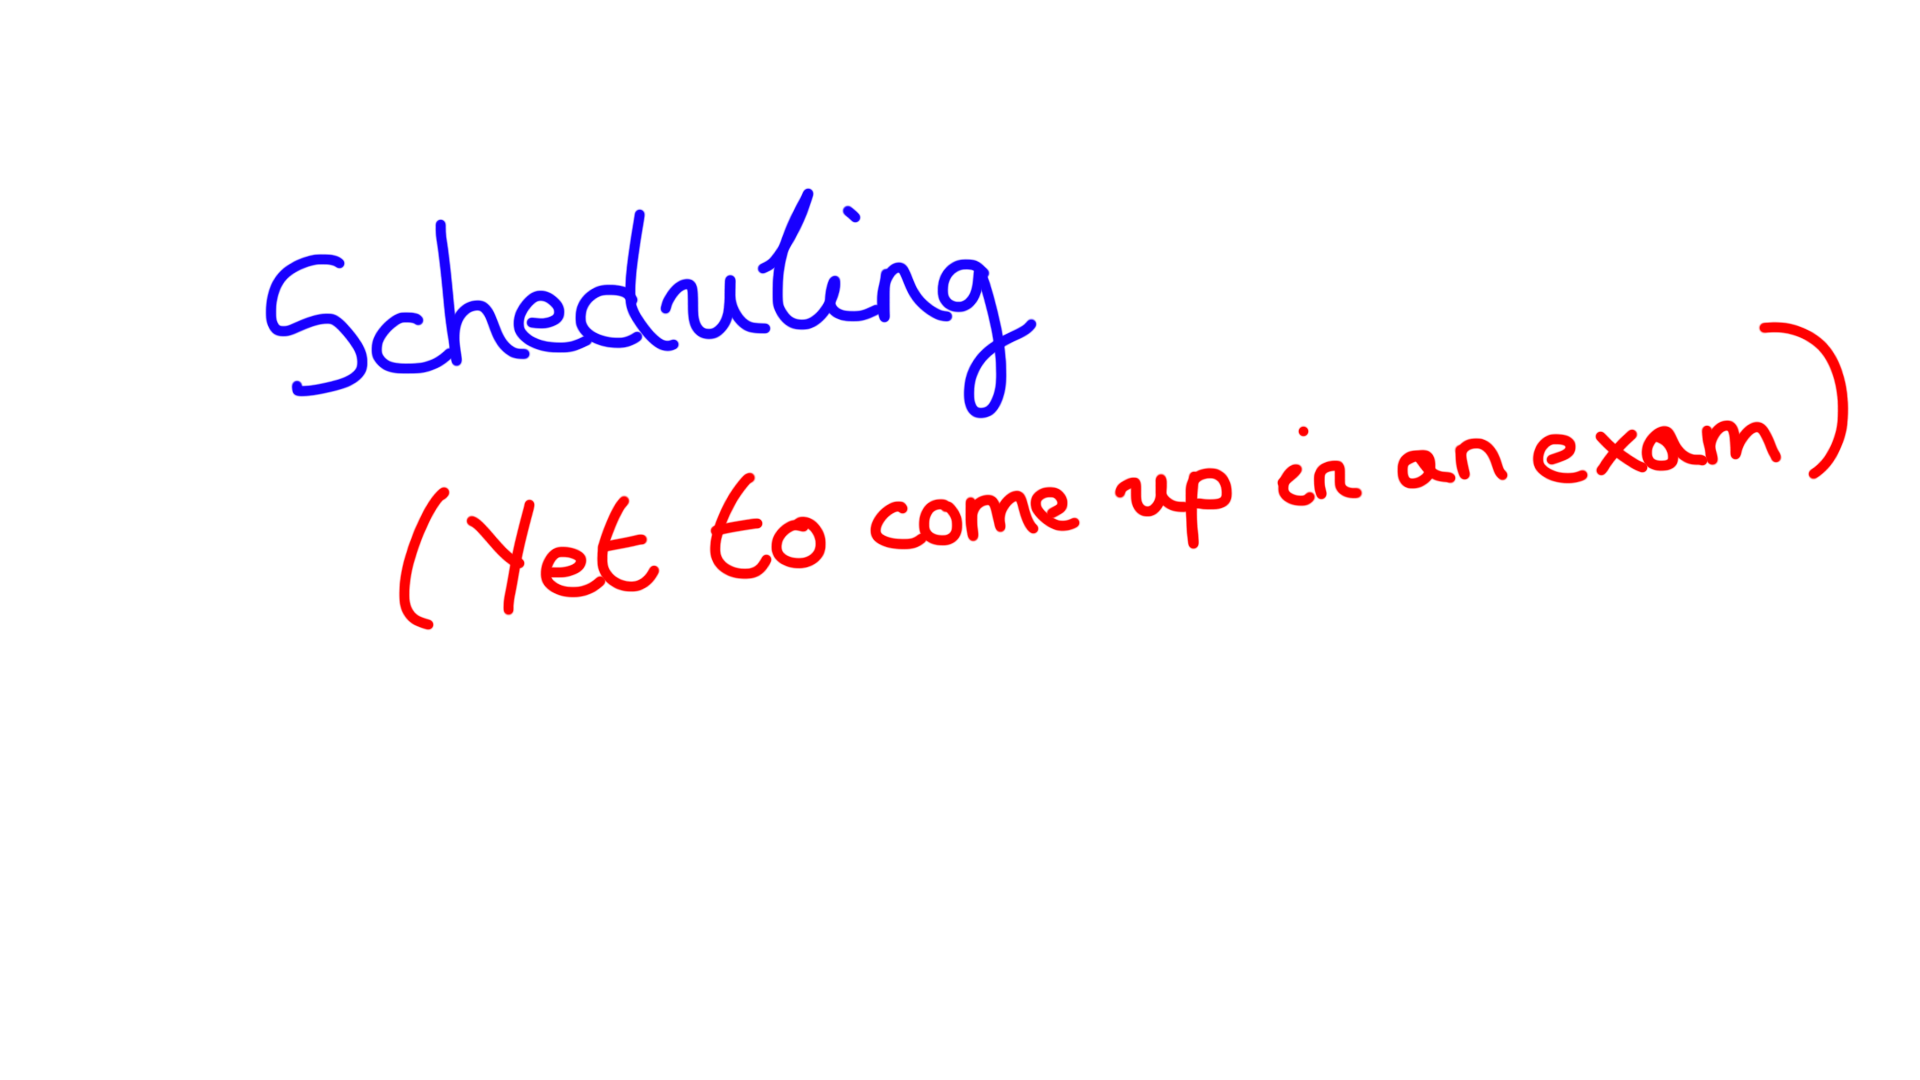 Scheduling
(Yet to come up in an exam)